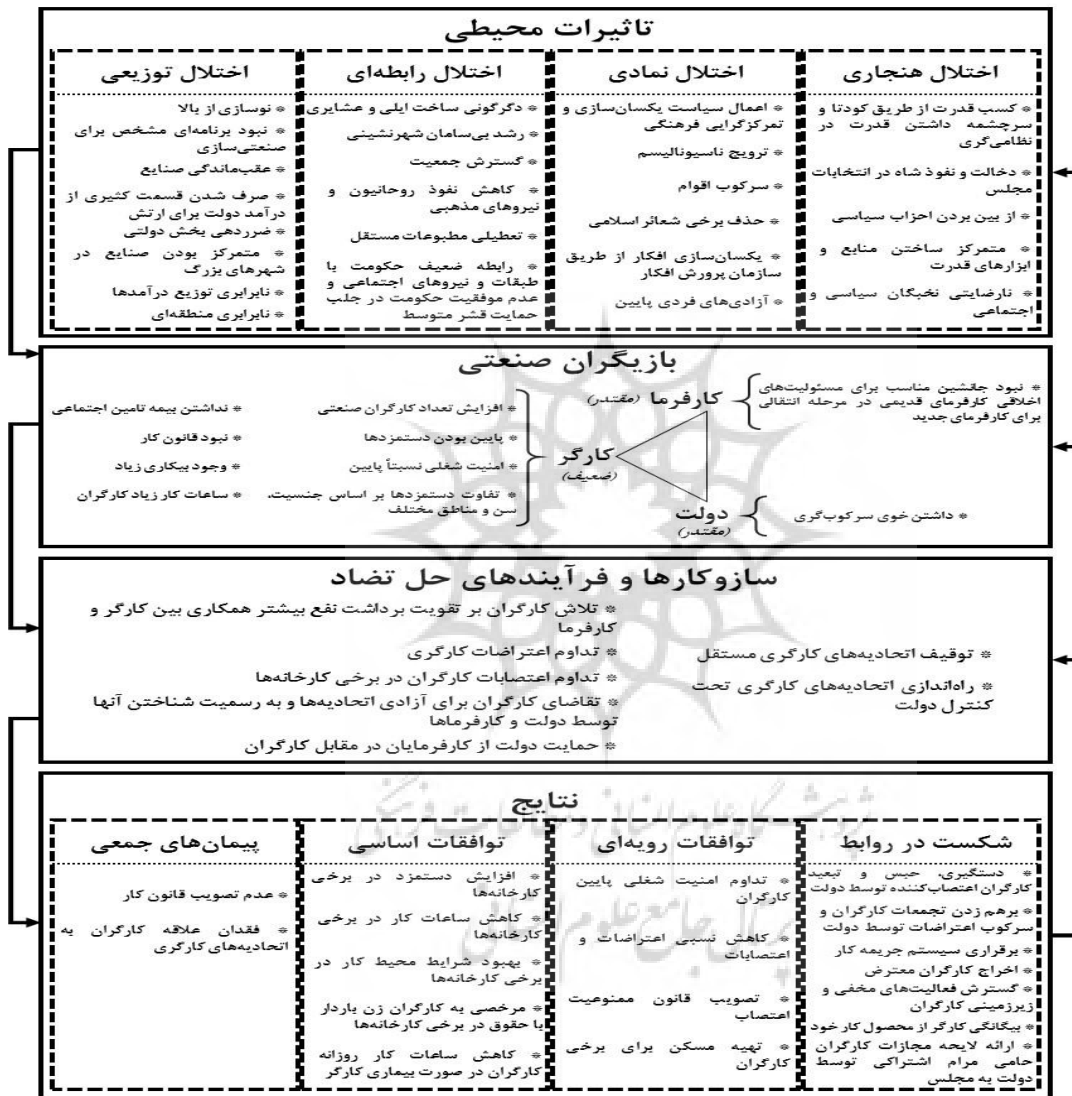 تاثیرات محیطی
اختلال هنجاری
* کسب قدرت از طریق کودتا و
سرچشمه داشتن قدرت در
نظامی‌گری
* دخالت و نفوذ شاه در انتخابات
مجلس
* از بین بردن احزاب سیاسی
* متمرکز ساختن منابع و
ابزارهای قدرت
* نارضایتی نخبگان سیاسی و
اجتماعی
اختلال نمادی
* اعمال سیاست یکسان‌سازی و
تمرکزگرایی فرهنگی
* ترویج ناسیونالیسم
* سرکوب اقوام
* حذف برخی شعائر اسلامی
* یکسان‌سازی افکار از طریق
سازمان پرورش افکار
* آزادی‌های فردی پایین
اختلال رابطه‌ای
* دگرگونی ساخت ایلی و عشایری
* رشد بی‌سامان شهرنشینی
* گسترش جمعیت
* کاهش نفوذ روحانیون و
نیروهای مذهبی
* تعطیلی مطبوعات مستقل
* رابطه ضعیف حکومت با
طبقات و نیروهای اجتماعی و
عدم موفقیت حکومت در جلب
حمایت قشر متوسط
اختلال توزیعی
* نوسازی از بالا
* نبود برنامه‌ای مشخص برای
صنعتی‌سازی
* عقب‌ماندگی صنایع
* صرف شدن قسمت کثیری از
درآمد دولت برای ارتش
* ضرردهی بخش دولتی
* متمرکز بودن صنایع در
شهرهای بزرگ
* نابرابری توزیع درآمدها
* نابرابری منطقه‌ای
بازیگران صنعتی
* نبود جانشین مناسب برای مسئولیت‌های
اخلاقی کارفرمای قدیمی در مرحله انتقالی
برای کارفرمای جدید
کارفرما (مقتدر)
کارگر
(ضعیف)
دولت
(مقتدر)
* داشتن خوی سرکوب‌گری
* افزایش تعداد کارگران صنعتی
* پایین بودن دستمزدها
* امنیت شغلی نسبتاً پایین
* تفاوت دستمزدها بر اساس جنسیت،
سن و مناطق مختلف
* نداشتن بیمه تامین اجتماعی
* نبود قانون کار
* وجود بیکاری زیاد
* ساعات کار زیاد کارگران
سازوکارها و فرآیندهای حل تضاد
* توقیف اتحادیه‌های کارگری مستقل
* راه‌اندازی اتحادیه‌های کارگری تحت
کنترل دولت
* تلاش کارگران بر تقویت برداشت نفع بیشتر همکاری بین کارگر و
کارفرما
* تداوم اعتراضات کارگری
* تداوم اعتصابات کارگران در برخی کارخانه‌ها
* تقاضای کارگران برای آزادی اتحادیه‌ها و به رسمیت شناختن آنها
توسط دولت و کارفرماها
* حمایت دولت از کارفرمایان در مقابل کارگران
نتایج
شکست در روابط
* دستگیری، حبس و تبعید
کارگران اعتصاب‌کننده توسط دولت
* برهم زدن تجمعات کارگران و
سرکوب اعتراضات توسط دولت
* برقراری سیستم جریمه کار
* اخراج کارگران معترض
* گسترش فعالیت‌های مخفی و
زیرزمینی کارگران
* بیگانگی کارگر از محصول کار خود
* ارائه لایحه مجازات کارگران
حامی مرام اشتراکی توسط
دولت به مجلس
توافقات رویه‌ای
* تداوم امنیت شغلی پایین
کارگران
* کاهش نسبی اعتراضات و
اعتصابات
* تصویب قانون ممنوعیت
اعتصاب
* تهیه مسکن برای برخی
کارگران
توافقات اساسی
* افزایش دستمزد در برخی
کارخانه‌ها
* کاهش ساعات کار در برخی
کارخانه‌ها
* بهبود شرایط محیط کار در
برخی کارخانه‌ها
* مرخصی به کارگران زن باردار
با حقوق در برخی کارخانه‌ها
* کاهش ساعات کار روزانه
کارگران در صورت بیماری کارگر
پیمان‌های جمعی
* عدم تصویب قانون کار
* فقدان علاقه کارگران به
اتحادیه‌های کارگری
پژوهشگاه علوم انسانی و مطالعات فرهنگی
پرتال جامع علوم انسانی